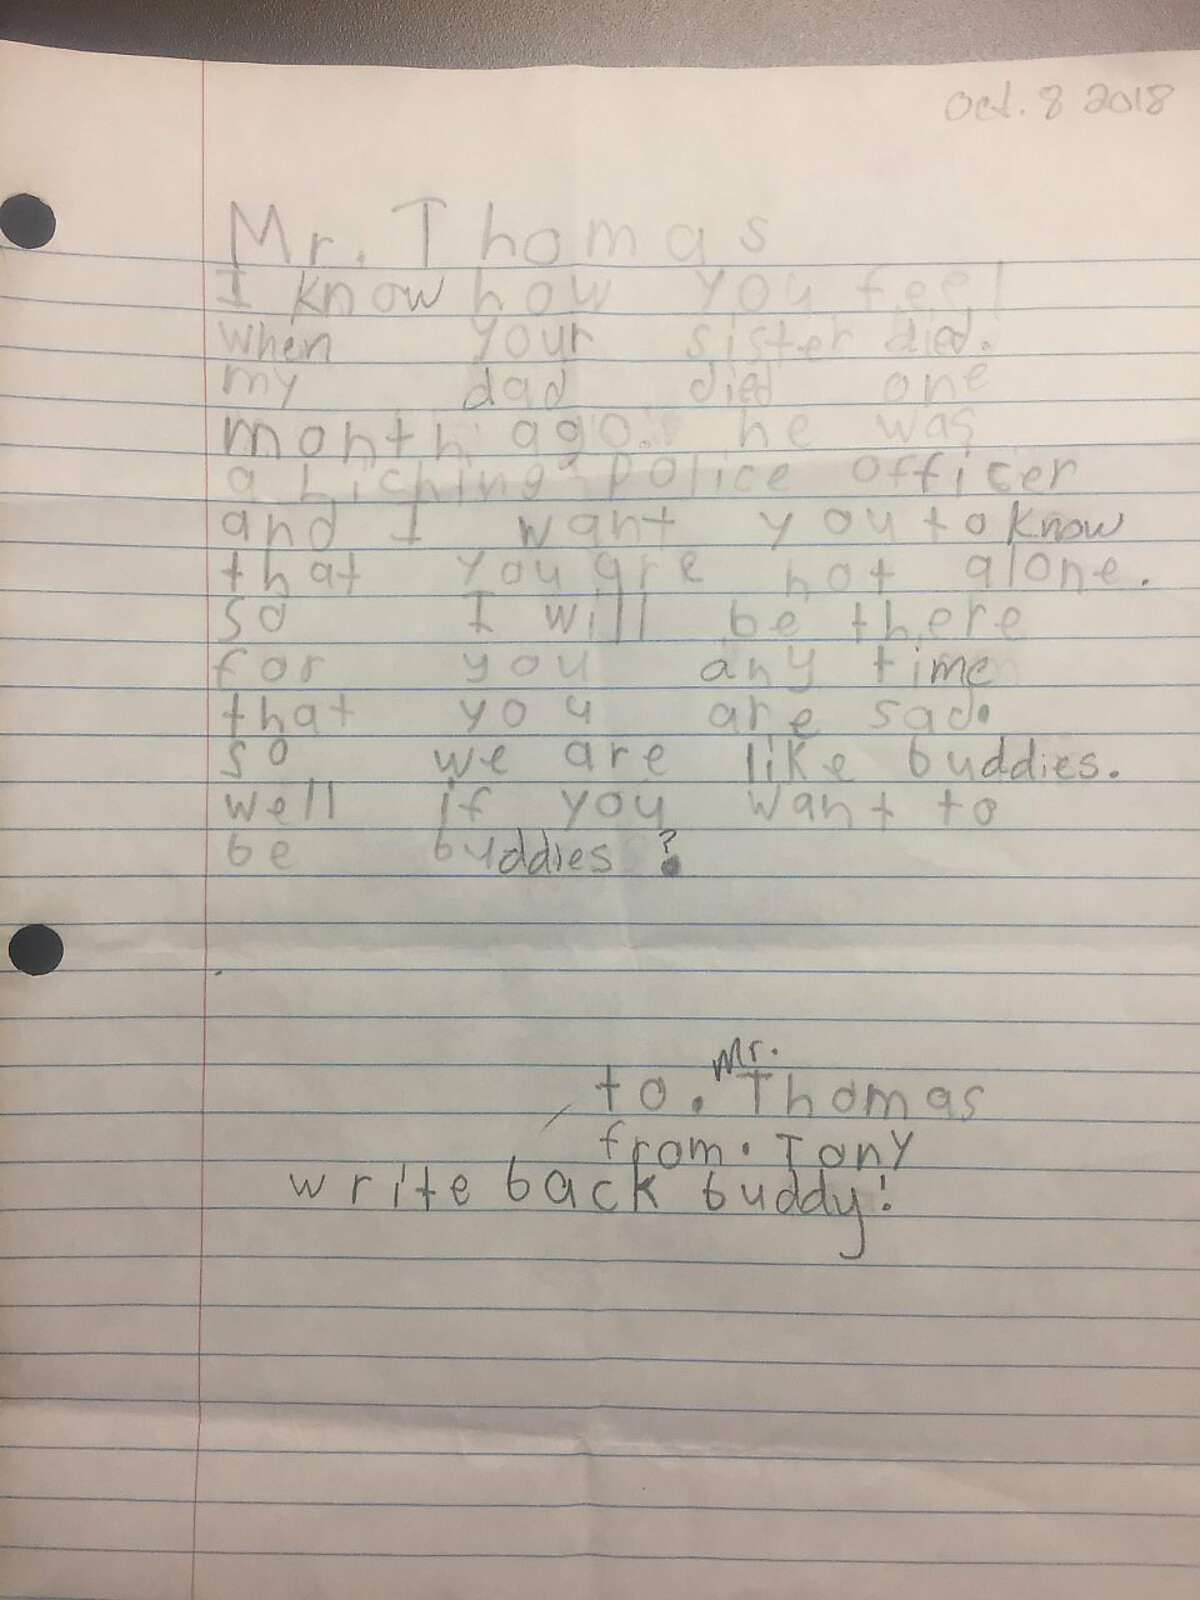 Oct. 8 2018
Mr. Thomas
I know how you feel
when your sister died.
my dad died one
month ago. he was
a Liching police officer
and I want you to know
that you are not alone.
so I will be there
for you any time
that you are sad.
so we are like buddies.
well if you want to
be buddies ?
Mr.
to. Thomas
from. Tony
write back buddy!